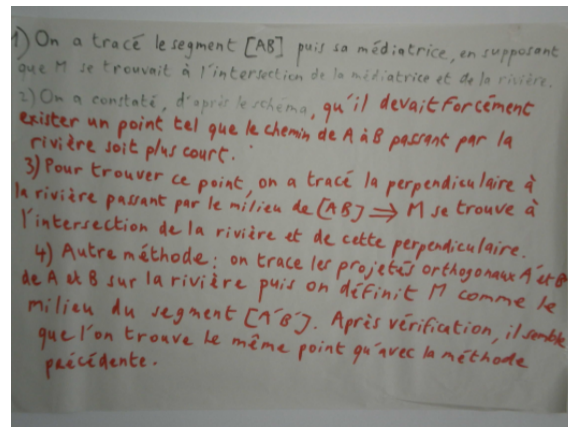 1) On a tracé le segment [AB] puis sa médiatrice, en supposant
que M se trouvait à l'intersection de la médiatrice et de la rivière.
2) On a constaté, d'après le schéma, qu'il devait forcément
exister un point tel que le chemin de A à B passant par la
rivière soit plus court.
3) Pour trouver ce point, on a tracé la perpendiculaire à
la rivière passant par le milieu de [AB] ⇒ M se trouve à
l'intersection de la rivière et de cette perpendiculaire.
4) Autre méthode : on trace les projetés orthogonaux A' et B'
de A et B sur la rivière puis on définit M comme le
milieu du segment [A'B']. Après vérification, il semble
que l'on trouve le même point qu'avec la méthode
précédente.